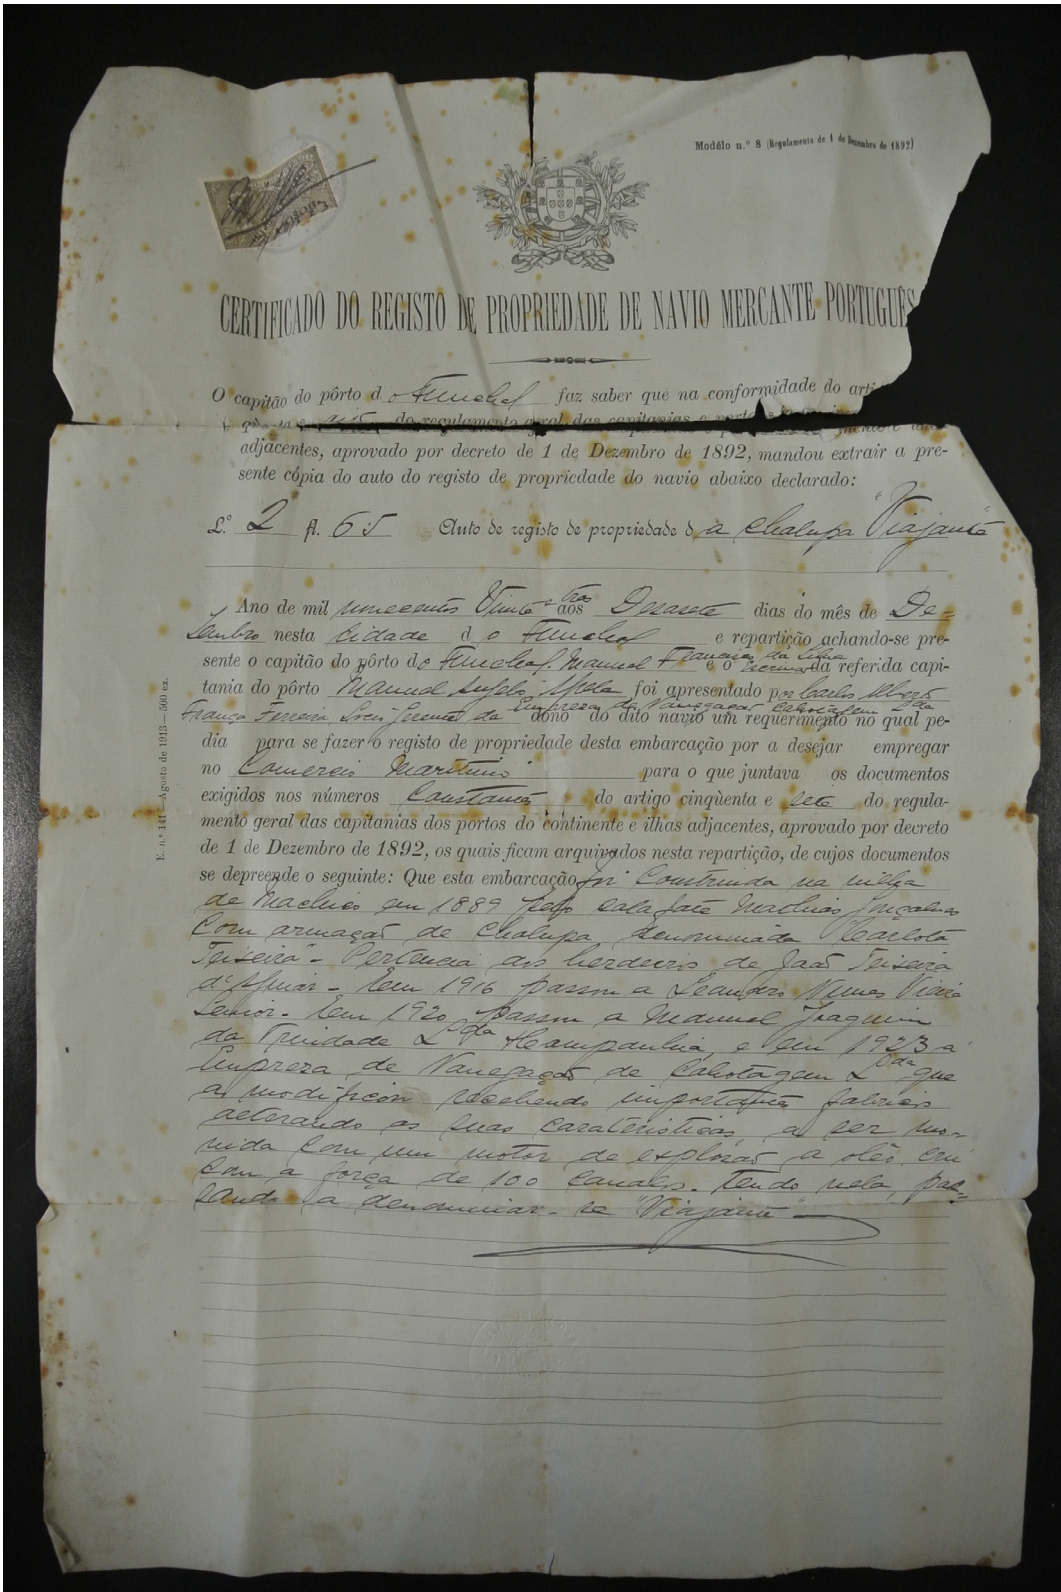 Modêlo n.º 8 (Regulamento de 1 de Dezembro de 1892)
CERTIFICADO DO REGISTO DE PROPRIEDADE DE NAVIO MERCANTE PORTUGUÊS
O capitão do pôrto do Funchal faz saber que na conformidade do arti
do regulamento geral das capitanias e portos
adjacentes, aprovado por decreto de 1 de Dezembro de 1892, mandou extrair a pre-
sente cópia do auto do registo de propriedade do navio abaixo declarado:
L.º 2 fl. 65 Auto de registo de propriedade da chalupa "Viajante"
Ano de mil novecentos Vinte e tres aos Desasete dias do mês de De-
sembro nesta cidade do Funchal e repartição achando-se pre-
sente o capitão do pôrto do Funchal, Manuel Francisco da Silva e o escrivão da referida capi-
tania do pôrto Manuel foi apresentado por Carlos Alberto
França Ferreira, Socio Gerente da Empreza de Navegação Cabotagem Lda dono do dito navio um requerimento no qual pe-
dia para se fazer o registo de propriedade desta embarcação por a desejar empregar
no Comercio Maritimo para o que juntava os documentos
exigidos nos números Constantes do artigo cinqüenta e sete do regula-
mento geral das capitanias dos portos do continente e ilhas adjacentes, aprovado por decreto
de 1 de Dezembro de 1892, os quais ficam arquivados nesta repartição, de cujos documentos
se depreende o seguinte: Que esta embarcação foi Construida na villa
de Machico em 1889 pelo calafate Mathias Gonçalves
Com armação de Chalupa denominada "Carlota
Teixeira" - Pertencia aos herdeiros de João Teixeira
d'Aguiar - Em 1916 passou a Leandro Nunes Vieira
Senior - Em 1920 passou a Manuel Joaquim
da Trindade & Companhia Lda e em 1923 a
Empreza de Navegação de Cabotagem Lda que
a modificou recebendo importantes fabricos
alterando as suas carateristicas, a ser mo-
vida com um motor de explosão a oleo crú
com a força de 100 cavalos. Tendo vela, pas-
sando a denominar-se "Viajante"
E. n.º 141—Agosto de 1913—500 ex.